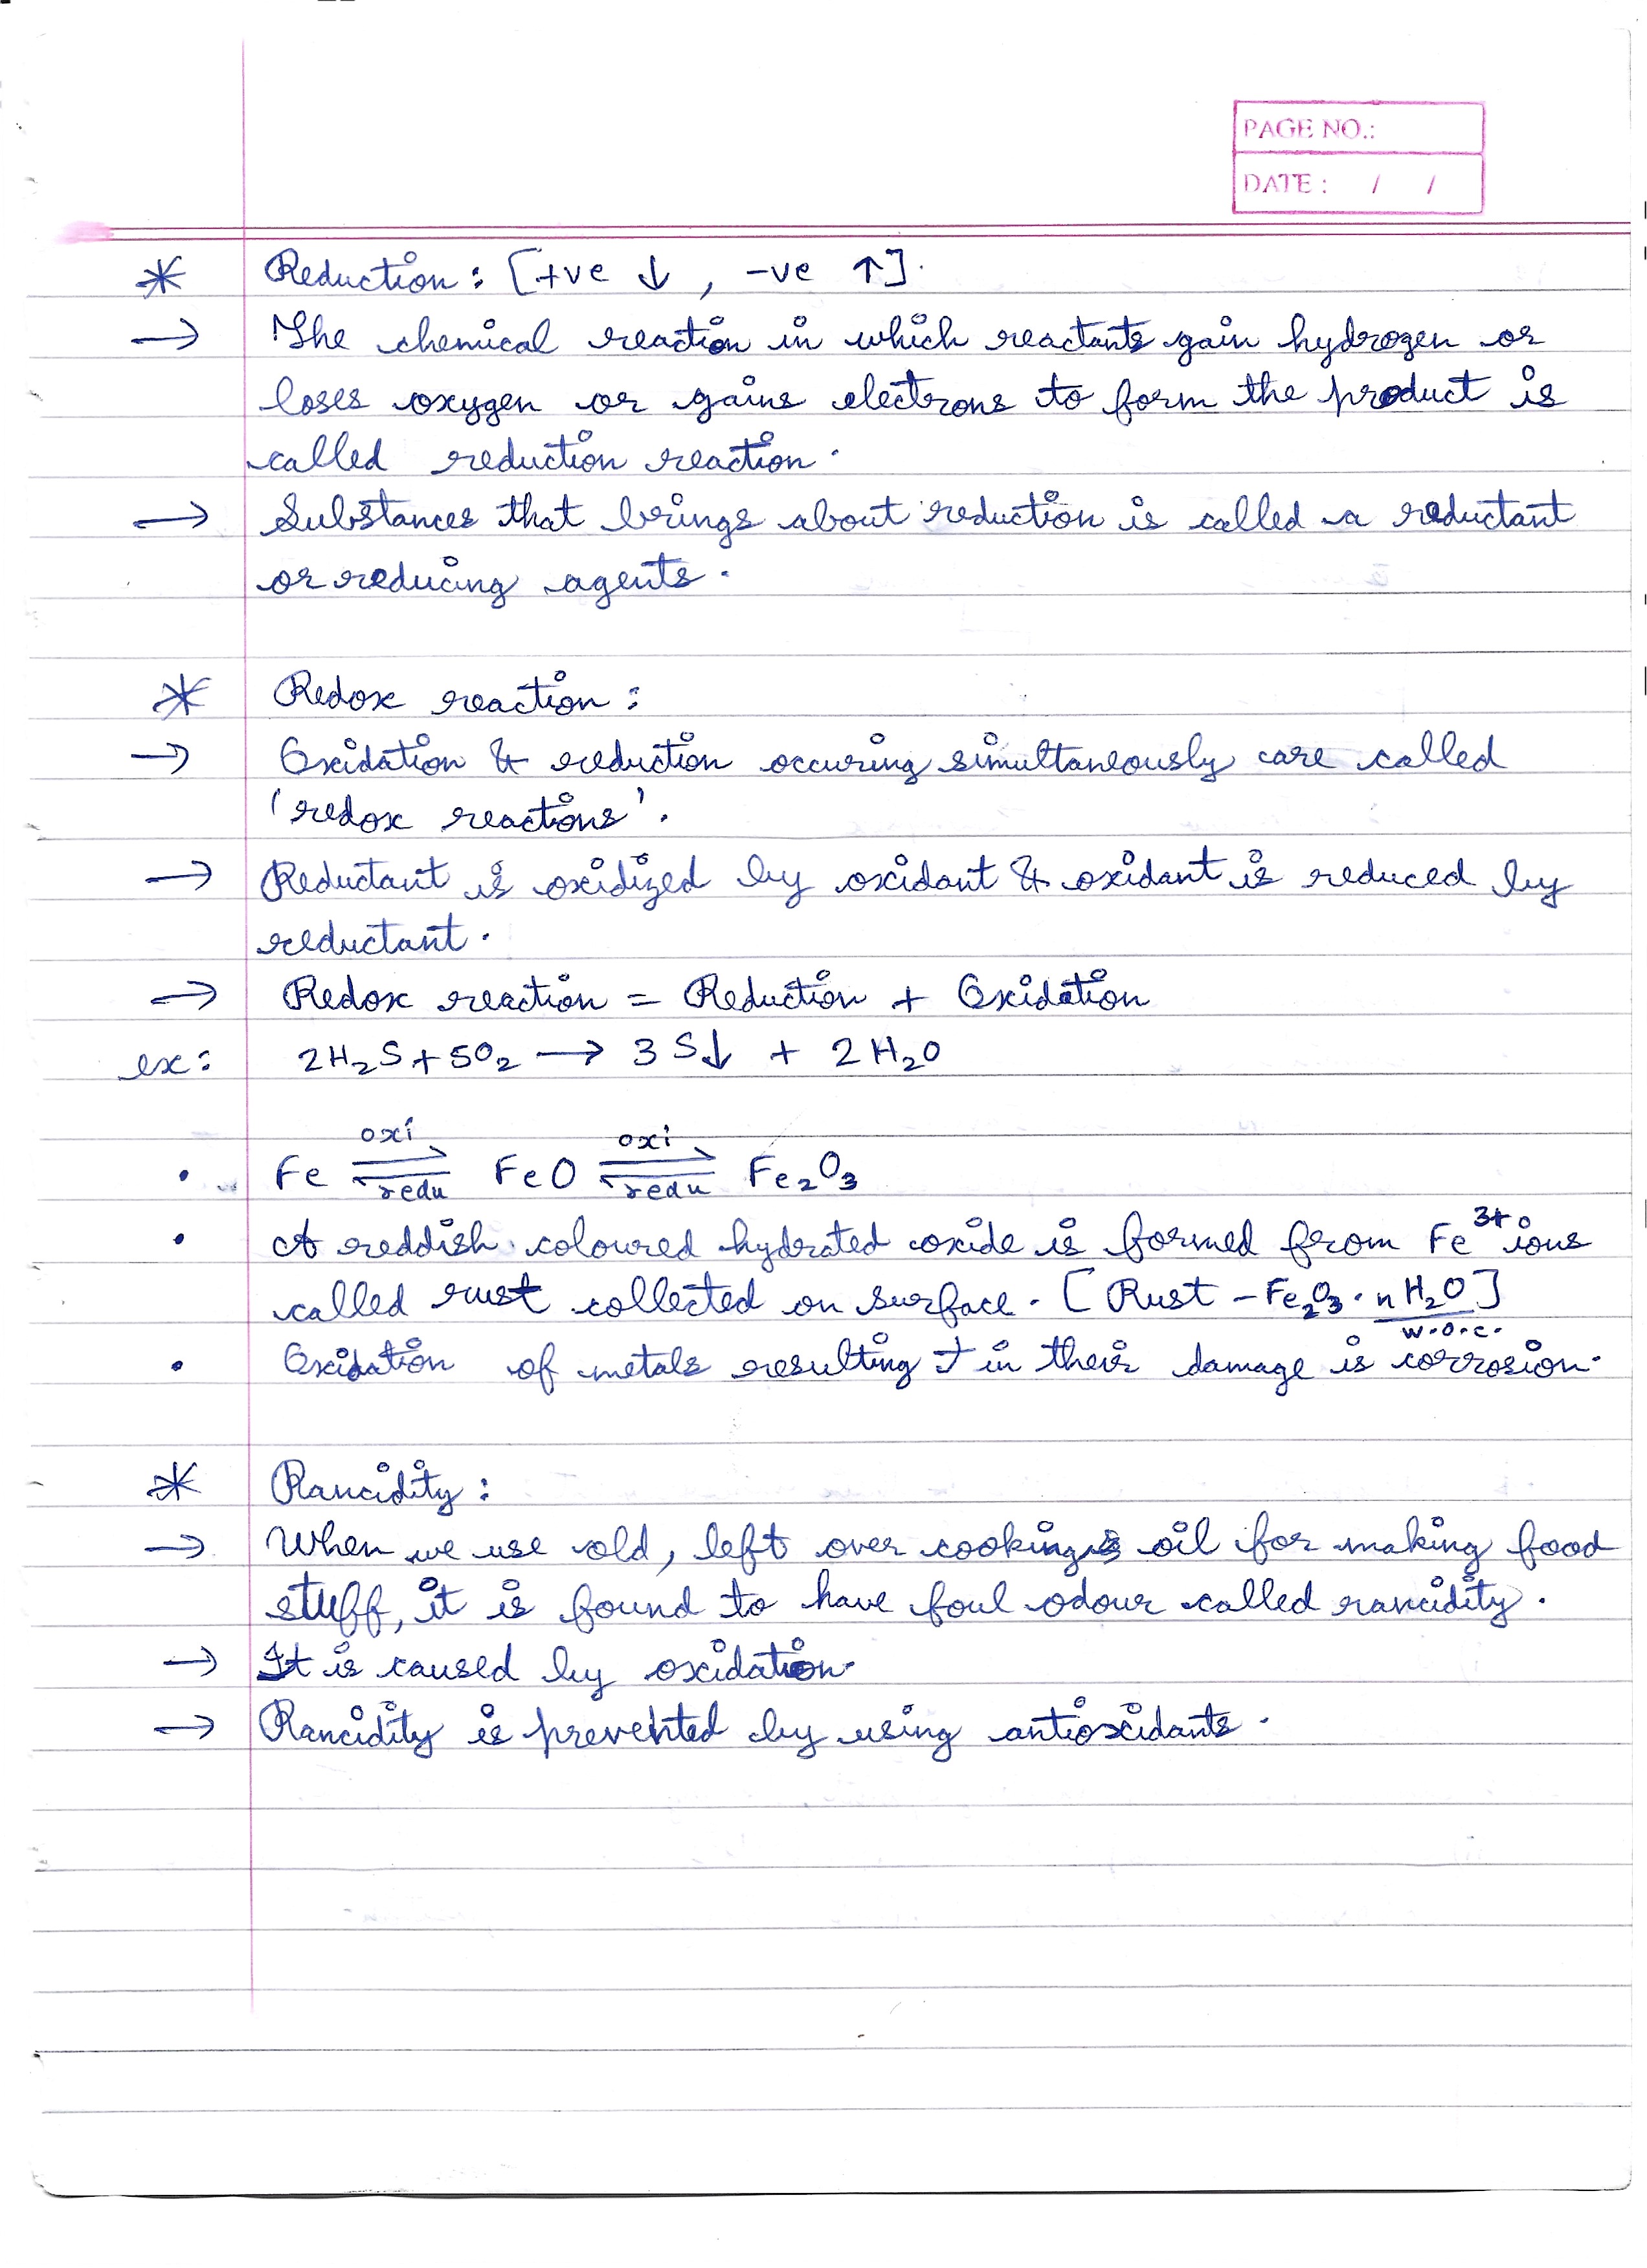 PAGE NO.:
DATE : / /
* Reduction : [+ve ↓ , -ve ↑].
→ The chemical reaction in which reactants gain hydrogen or
loses oxygen or gains electrons to form the product is
called reduction reaction.
→ Substances that brings about reduction is called a reductant
or reducing agents.
* Redox reaction :
→ Oxidation & reduction occuring simultaneously are called
'redox reactions'.
→ Reductant is oxidized by oxidant & oxidant is reduced by
reductant.
→ Redox reaction = Reduction + Oxidation
ex: 2H₂S + SO₂ → 3 S↓ + 2 H₂O
oxi oxi
• Fe ⇌ FeO ⇌ Fe₂O₃
redu redu
• A reddish coloured hydrated oxide is formed from Fe³⁺ ions
called rust collected on surface. [ Rust - Fe₂O₃ · n H₂O ]
w.o.c.
• Oxidation of metals resulting in their damage is corrosion.
* Rancidity :
→ When we use old, left over cooking oil for making food
stuff, it is found to have foul odour called rancidity.
→ It is caused by oxidation.
→ Rancidity is prevented by using antioxidants.